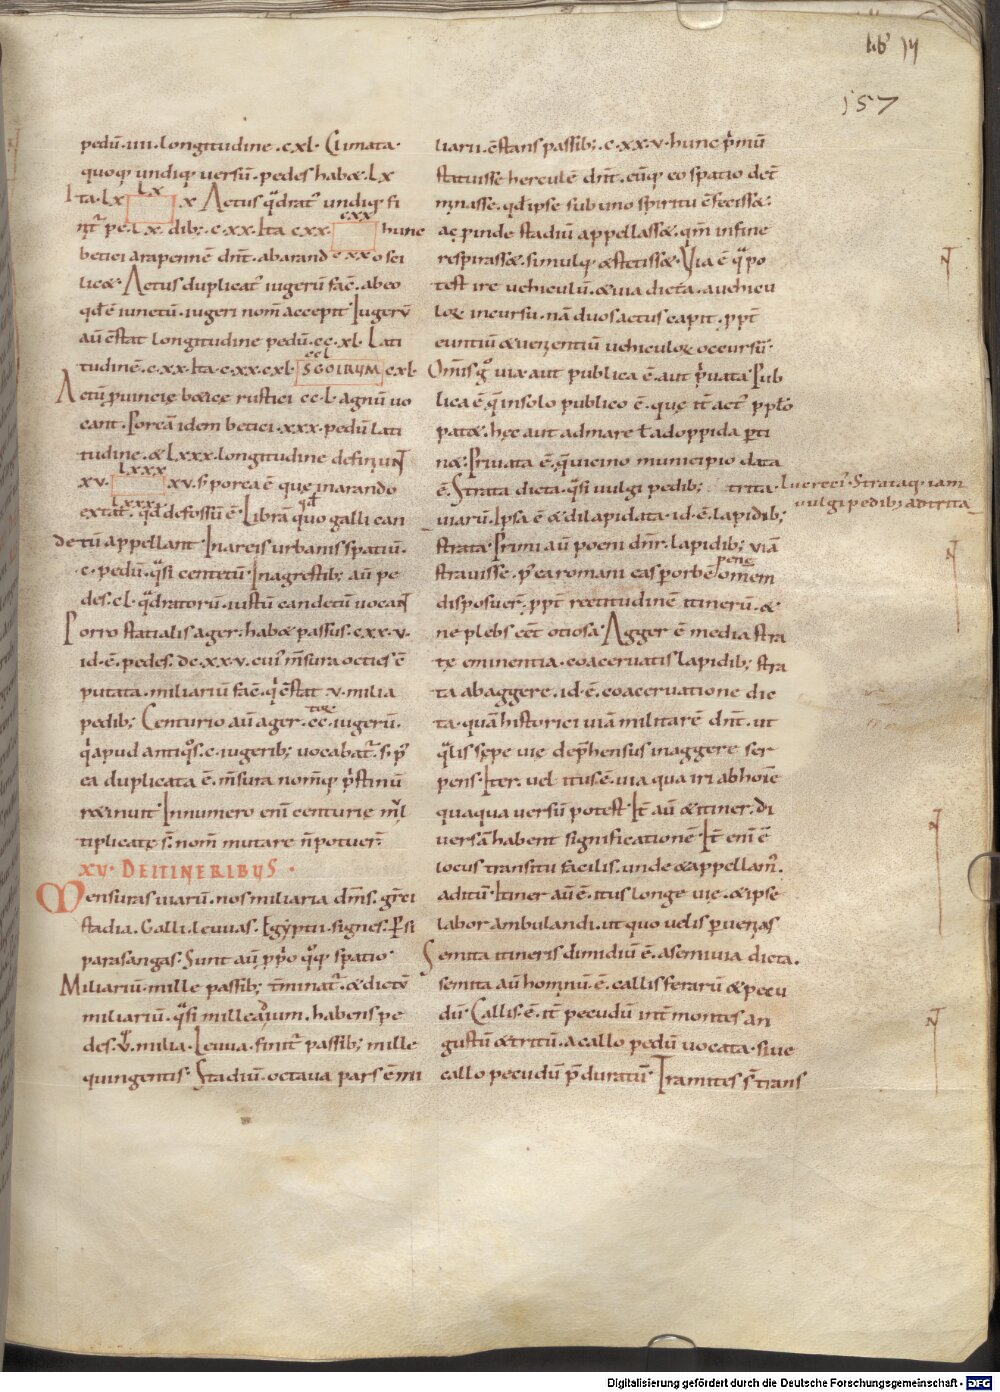 lib' XV
157
pedū·iiii·longitudine·cxl· Climata·
quoq; undiq; uersū·pedes habɛ&·Lx
Ita·Lx Lx x Actus q̄drat' undiq; fi
nit' pe·Lx·dib;·c·xx·Ita cxx· cxx hunc
betici arapennē dn̄t·abarand cxx o sci
lic&·Actus duplicat' iugerū fac̄·abeo
qd ē iunctū·iugeri nom̄ accepit Iugerū
aū c̄stat longitudine pedū·cc·xl· Lati
tudinē·c·xx·Ita·c·xx·cxl· ccl SGOIRUM cxl·
Actū puincię b&icę rustici cc·l·agnū uo
cant·Porcā idem betici·xxx·pedū lati
tudine·&·Lxxx·longitudine definiunt
xv· Lxxx xv·s; porca ē quę inarando
extat· Lxxx qđ defossū ē·Librā quo galli can
detū appellant· Inareis urbanis spatiū·
c·pedū·q̄si centetū· Inagrestib; aū pe
des·cl·q̄dratorū·iustū candetū uocant
Porro statialis ager·hab&·passus·cxx·v·
id·ē·pedes·dc·xx·v·cui' m̄sura octies c̄
putata·miliariū fac̄·qi c̄stat·v·milia
pedib; Centurio aū ager·cc·iugerū·
qi apud antiqos·c·iugerib; uocabat'·s; p̄
ea duplicata ē·m̄sura nom̄q; p̄stinū
r&inuit Innumero eni centurię ml
tiplicatę s·nom̄ mutare n̄potuer̄·
XV· DE ITINERIBUS·
Mensuras uiarū·nos miliaria dm̄s·gr̄ci
stadia·Galli·leuuas·Egyptii·signes·Psi
parasangas·Sunt aū ppo qq; spatio·
Miliariū·mille passib; t̄minat'·& dictū
miliariū·q̄si mille adium·habens pe
des·v·milia·Leuua·finit' passib; mille
quingentis·Stadiū·octaua pars ē mi
liarii·c̄stans passib;·c·xx·v·hunc p̄mū
statuisse herculē dn̄t·eūq; eo spatio det̄
minasse·qd ipse sub uno spiritu c̄fecisse&·
ac pinde stadiū appellasse&·qm̄ in fine
respirasse&·simulq; &stetisse& Via ē q̄ po
test ire uehiculū·& uia dicta·auehicu
lor̄ incursu·nā duos actus capit·ppt̄
euntiū & uenientiū uehiculor̄ occursū·
Omīs g° uia aut publica ē·aut p̄uata· Pub
lica ē q̄ insolo publico ē·quę it' act' pplo
pat&·hęc aut admare t adoppida pti
n&·Priuata ē·q̄ uicino municipio data
ē·Strata dicta·q̄si uulgi pedib; trita· Lucreci'·Strataq; iam
uulgi pedib; adtrita
uiarū·Ipsa ē & dilapidata·id·ē·lapidib;
strata·Primi aū poeni dn̄r·lapidib; uiā
strauisse·p' ea romani eas porbē pene omnem
disposuer̄·ppt̄ rectitudinē itinerū·&
ne plebs eēt otiosa·Agger ē media stra
tę eminentia·coaceruatis lapidib; stra
ta abaggere·id·ē·coaceruatione dic
ta·quā historici uiā militarē dn̄t·ut
q̄lis sępe uię dephensus inaggere ser
pens·Iter·uel itus·ē·uia qua iri abhoīe
quaqua uersū potest It̄ aū & itiner·di
uersā habent significationē It̄ enī ē
locus transitu facilis·unde & appellam'·
aditū·Itiner aū ē·itus longe uię·& ipse
labor ambulandi·ut quo uelis puenias
Semita itineris dimidiū ē·asemiuia dicta·
semita aū hominū·ē·callis ferarū & pecu
dū·Callis·ē·it' pecudū int̄ montes an
gustū & tritū·a callo pedū uocata·siue
callo pecudū p̄duratū·Tramites s' trans
Digitalisierung gefördert durch die Deutsche Forschungsgemeinschaft - DFG